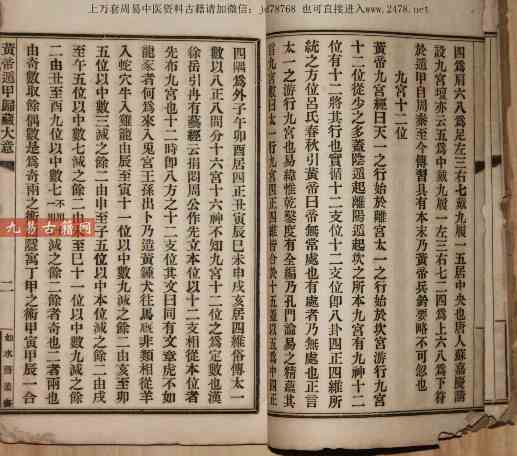 上万套周易中医资料古籍请加微信：jd78768 也可直接进入www.2478.net
四爲肩六八爲足左三右七戴九履一五居中央也唐人蘇嘉慶請
設九宮壇亦云五爲中戴九履一左三右七二四爲上六八爲下符
於遁甲自周秦至今傳習具有本末乃黃帝兵鈐要略不可忽也
九宮十二位
黃帝九宮經曰天一之行始於離宮太一之行始於坎宮游行九宮
十二位從少之多蓋陰遁起離陽遁起坎之所本九宮有九神十二
位有十二將其行也實循十二支位十二支位卽八卦四正四維所
統之方位呂氏春秋引黃帝曰帝無常處也有處者乃無處也正言
太一之游行九宮也易緯惟乾鑿度有全編乃孔門論易之精蘊其
四隅爲外子午卯酉居四正丑寅辰巳未申戌亥居四維俗傳太一
數以八正八間分十六宮十六神不知九宮十二位之爲定數也漢
徐岳引冉有藝經云捐悶周公作先立本位以十二支相從本位者
先布九宮也十二時卽八方之十二支位其文曰同有文章虎不如
龍豕者何爲來入兎宮王孫出卜乃造黃鍾犬往馬廐非類相從羊
入蛇穴牛入雞龍由辰至寅十一位以中數九減之餘二由亥至卯
五位以中數三減之餘二由申至子五位以中本位減之餘二由戌
至午九位以中數七減之餘二由未至巳十一位以中數九減之餘
二由丑至酉九位以中數七減之餘二餘者奇也二者兩也
由奇數取餘偶數是爲奇兩之術寓丁甲之術甲寅甲辰一合
黃帝遁甲歸藏大意
二
九易古籍网